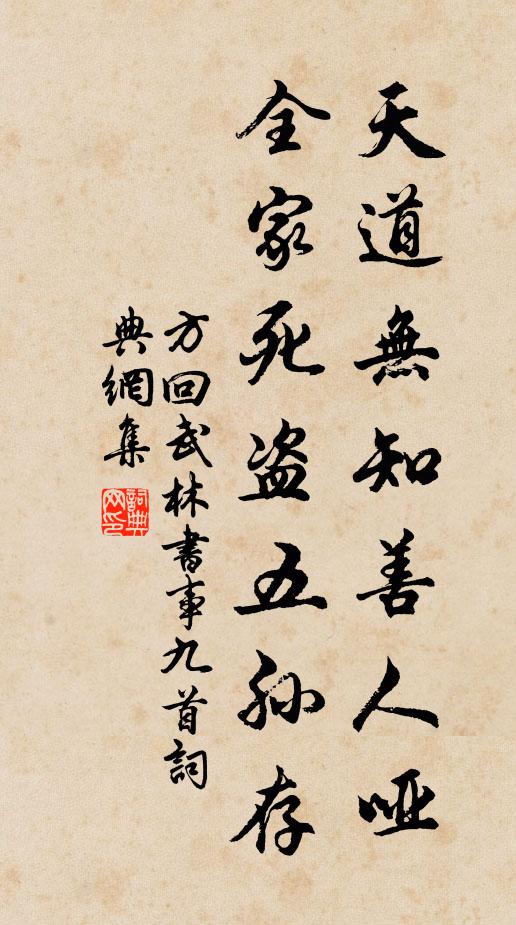 天道無知善人哑
全家死盗五孙存
方回武林書事九首詞
典網集
詞典网印